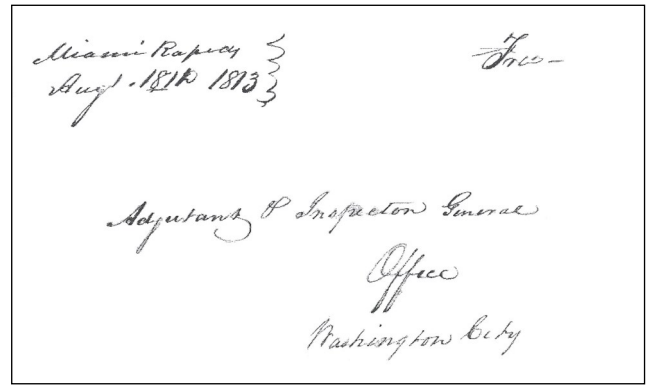 Miami Rapids
Augt. 18th 1813
Free
Adjutant & Inspector General
Office
Washington City